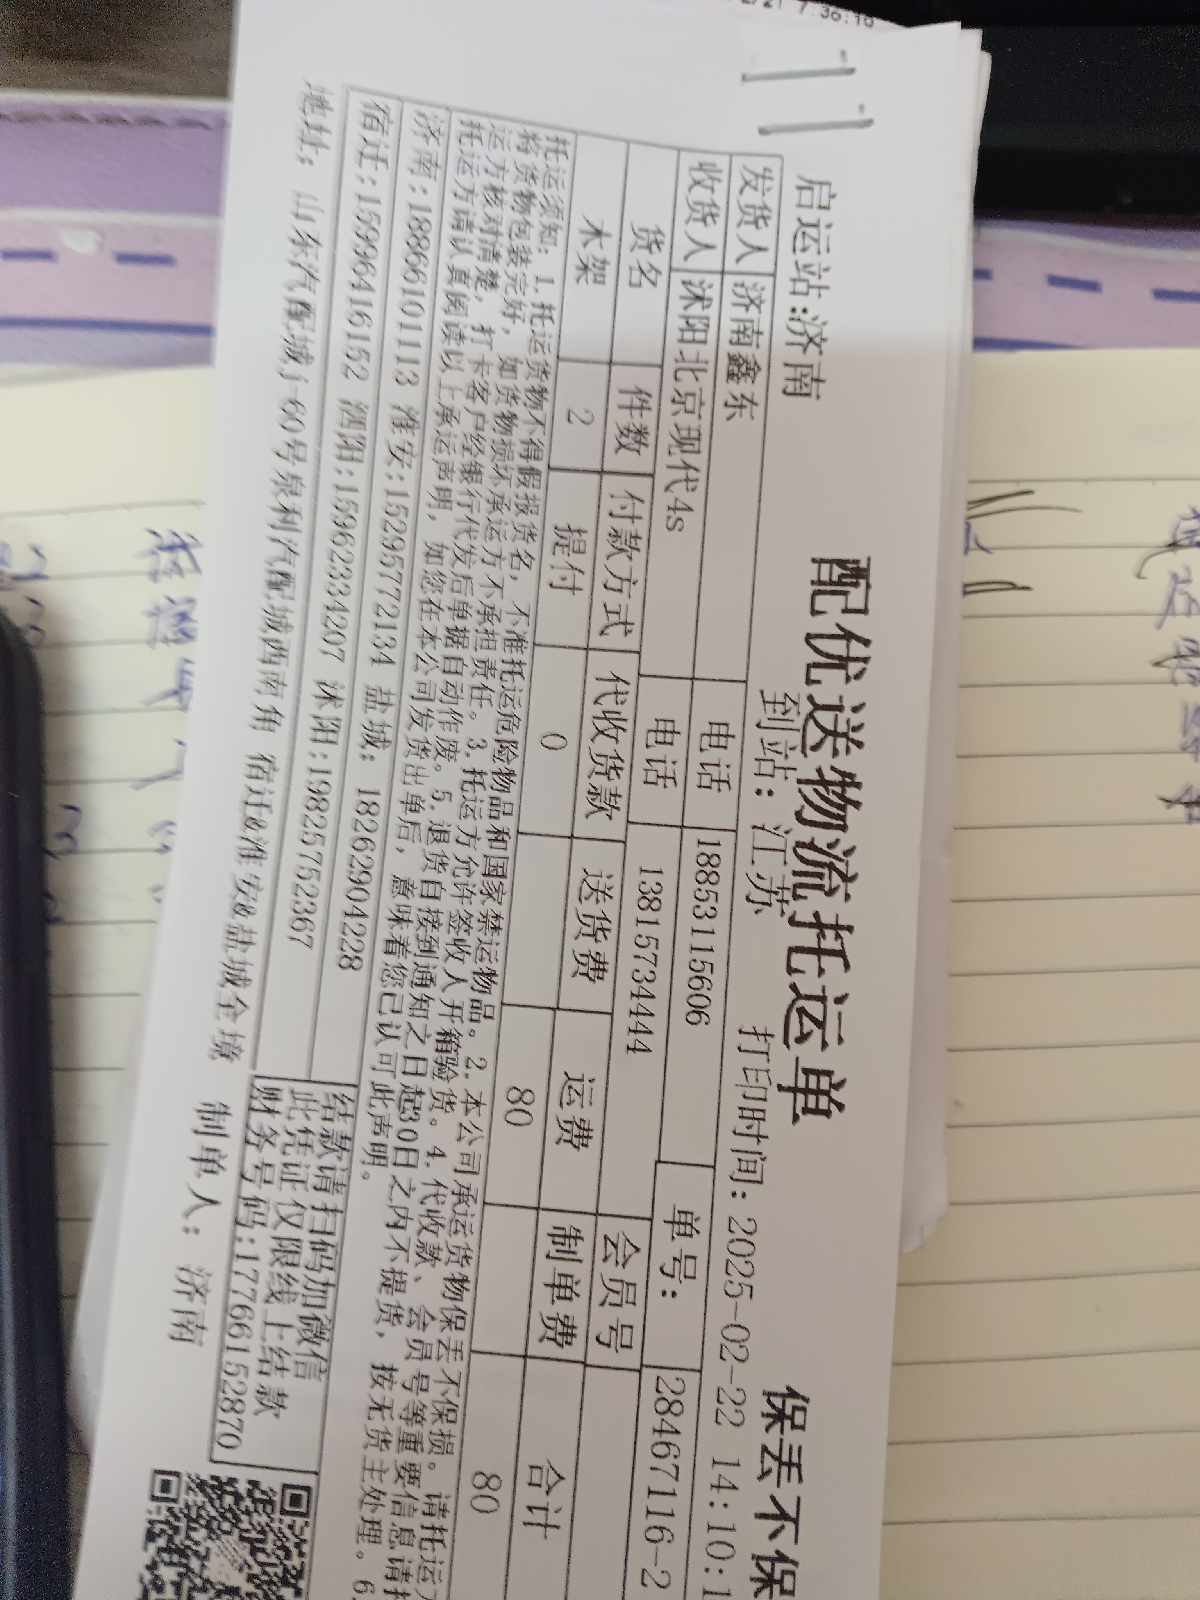 7:36:18
配优送物流托运单
保丢不保
启运站:济南 到站: 江苏 打印时间: 2025-02-22 14:10:1
发货人 济南鑫东 电话 18853115606 单号: 28467116-2
收货人 沭阳北京现代4s 电话 13815734444 会员号
货名 件数 付款方式 代收货款 送货费 运费 制单费 合计
木架 2 提付 0 80 80
托运须知: 1. 托运货物不得假报货名, 不准托运危险物品和国家禁运物品。2. 本公司承运货物保丢不保损。请托运
将货物包装完好, 如货物损坏承运方不承担责任。3. 托运方允许签收人开箱验货。4. 代收款、会员号等重要信息请
运方核对清楚, 打卡客户经银行代发后单据自动作废。5. 退货自接到通知之日起30日之内不提货, 按无货主处理。6.
托运方请认真阅读以上承运声明, 如您在本公司发货出单后, 意味着您已认可此声明。
济南:18866101113 淮安:15295772134 盐城: 18262904228
宿迁:15996416152 泗阳:15962334207 沭阳:19825752367
结款请扫码加微信
此凭证仅限线上结款
财务号码:17766152870
地址: 山东汽配城j-60号泉利汽配城西南角 宿迁&淮安&盐城全境 制单人: 济南